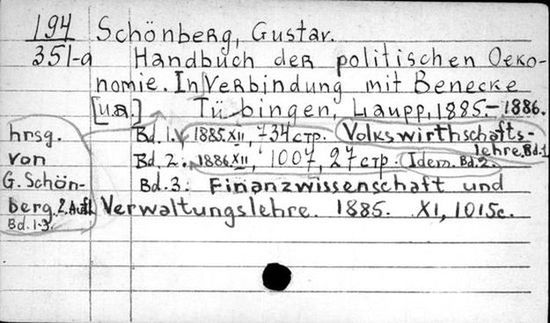 194 Schönberg, Gustav.
351-a Handbuch der politischen Oeko-
nomie. In Verbindung mit Benecke
[u.a.] Tübingen, Laupp, 1885.-1886.
hrsg. Bd. 1. 1885. XII, 734 стр. Volkswirthschafts-
lehre. Bd. 1
von Bd. 2. 1886. XII, 1007, 27 стр. Idem. Bd. 2.
G. Schön- Bd. 3. Finanzwissenschaft und
berg. 2. Aufl. Verwaltungslehre. 1885. XI, 1015 с.
Bd. 1-3.